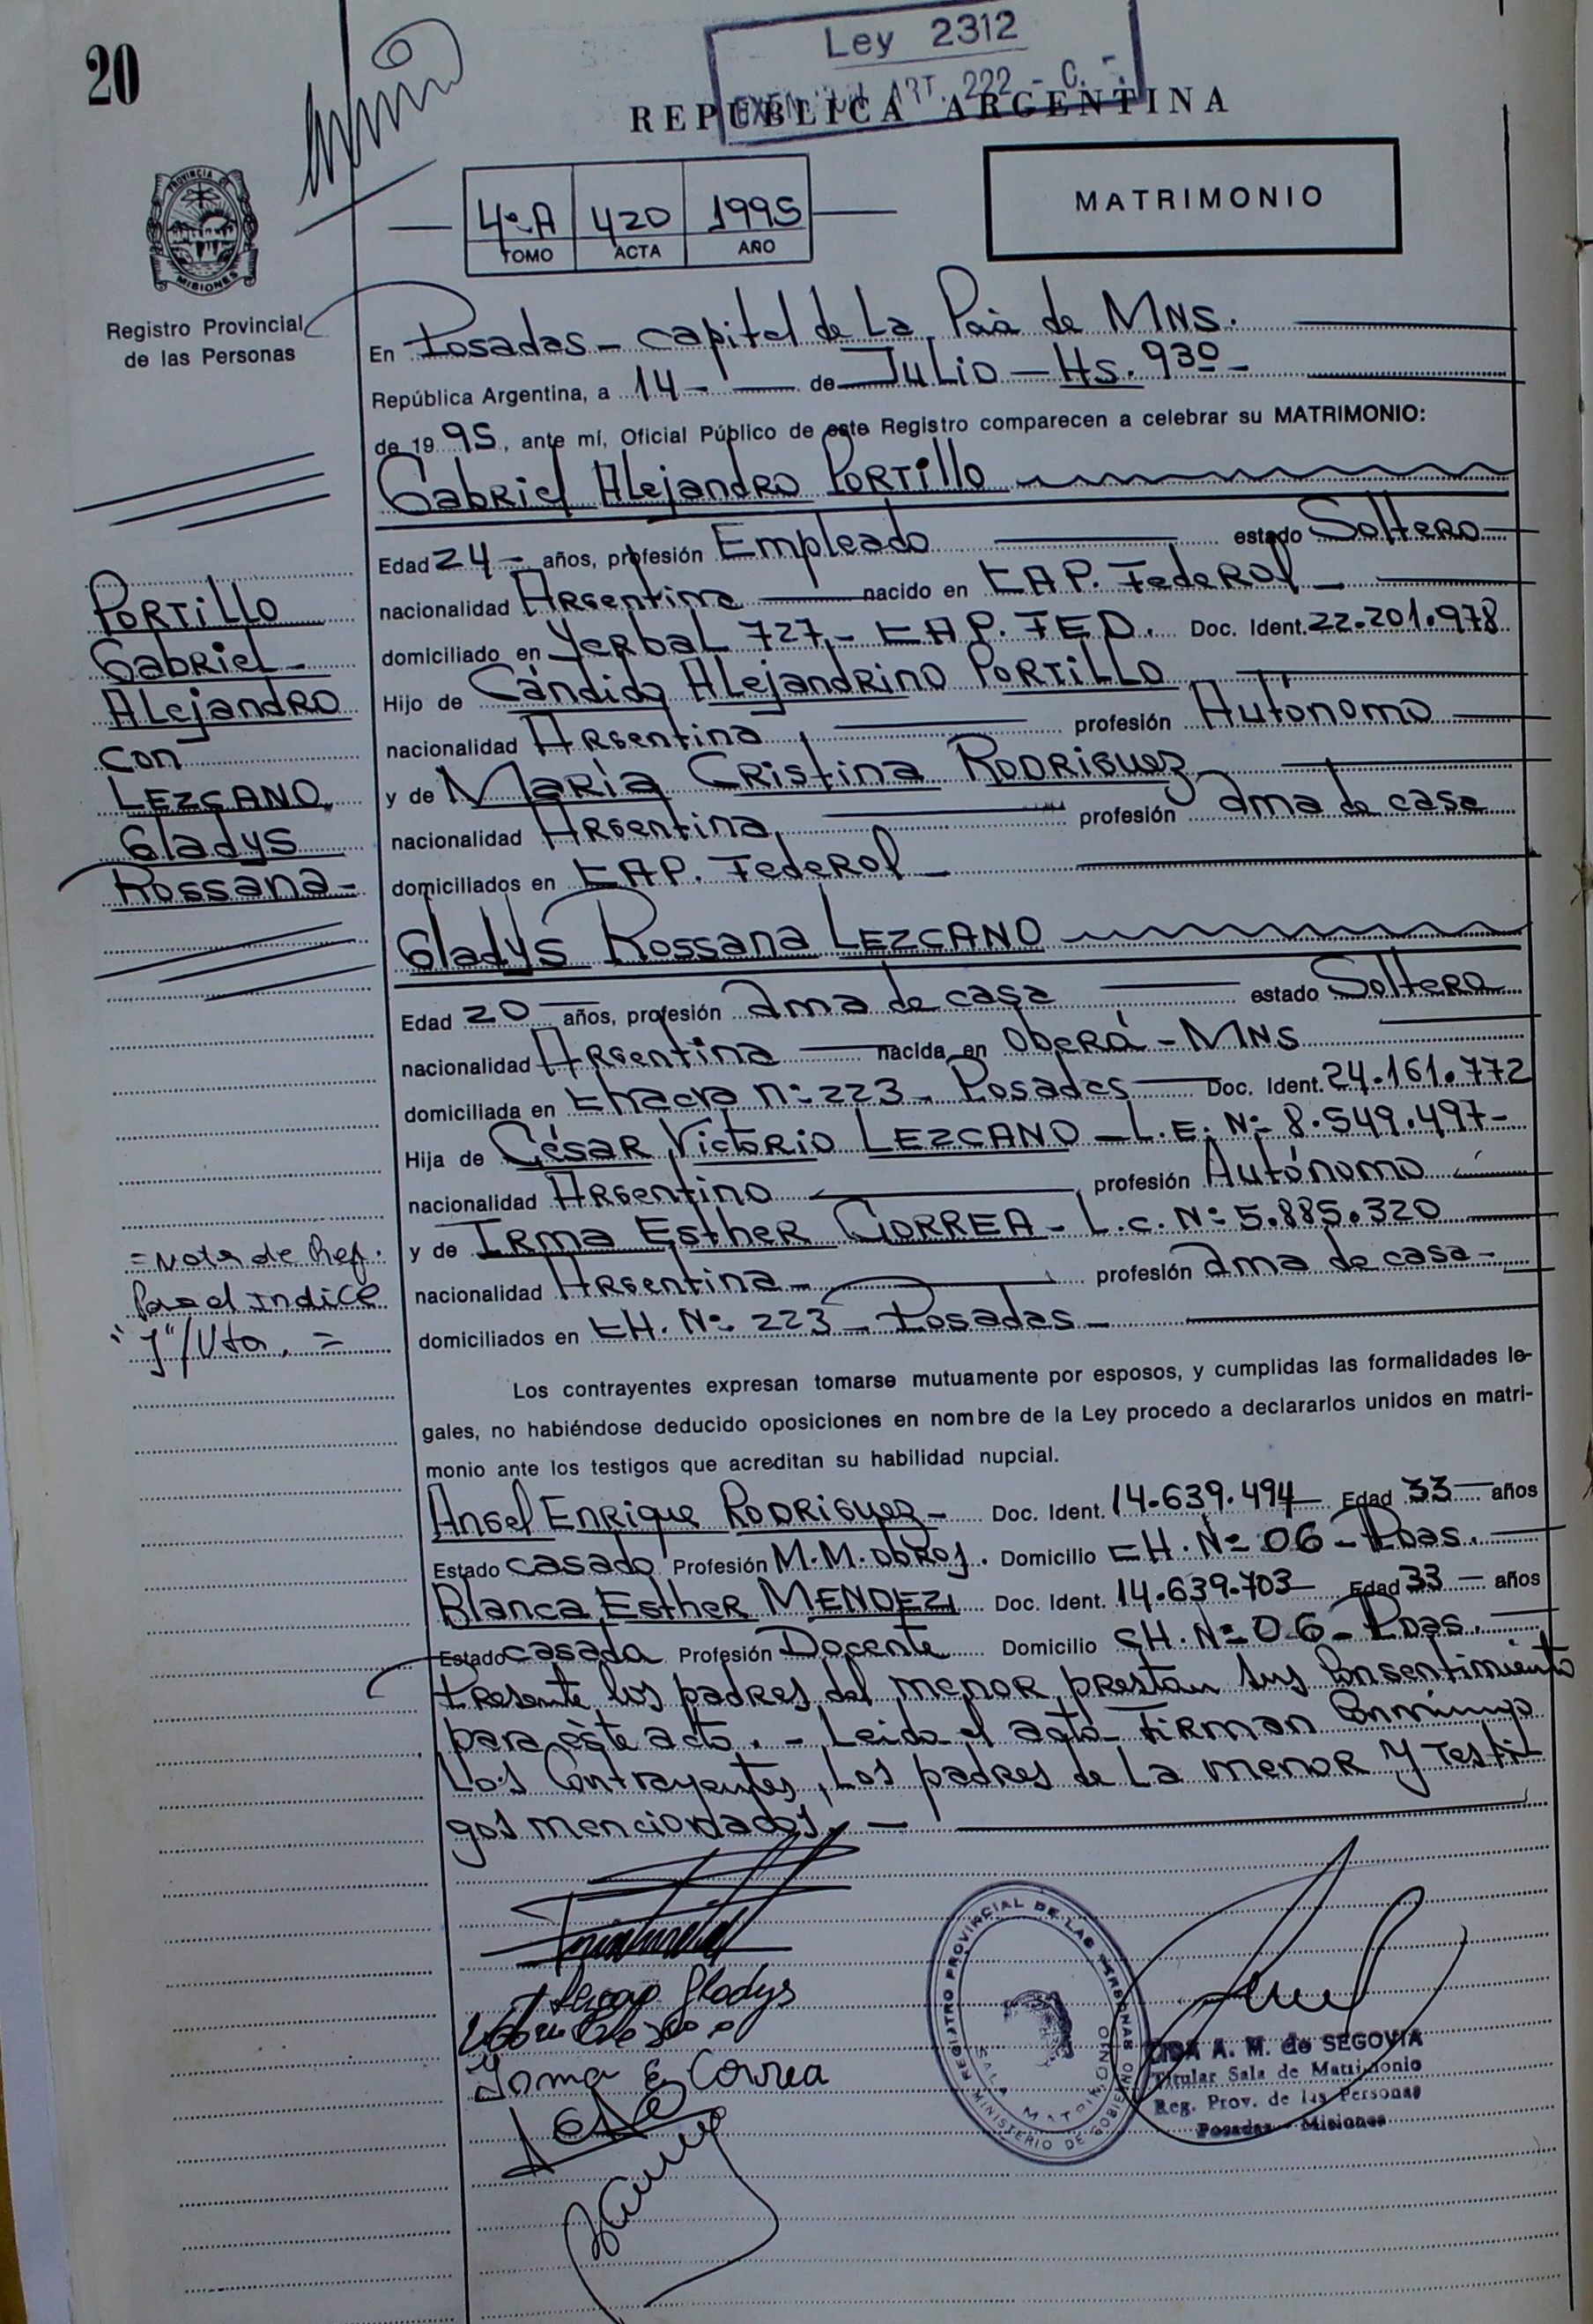 20
Ley 2312
ART. 222 - C.
REPUBLICA ARGENTINA
PROVINCIA DE
MISIONES
Registro Provincial
de las Personas
4º-A 420 1995
TOMO ACTA AÑO
MATRIMONIO
En Posadas - Capital de La Pcia de MNS.
República Argentina, a 14 - de Julio - Hs. 9 30 -
de 19 95, ante mí, Oficial Público de este Registro comparecen a celebrar su MATRIMONIO:
Gabriel Alejandro PORTILLO
Edad 24 - años, profesión Empleado estado Soltero
nacionalidad Argentina nacido en CAP. Federal
domiciliado en Yerbal 727 - CAP. FED. Doc. Ident. 22.201.978
Hijo de Cándido Alejandrino PORTILLO
nacionalidad Argentina profesión Autónomo
y de María Cristina RODRIGUEZ
nacionalidad Argentina profesión ama de casa
domiciliados en CAP. Federal
PORTILLO
Gabriel
Alejandro
con
LEZCANO
Gladys
Rossana -
Gladys Rossana LEZCANO
Edad 20 años, profesión ama de casa estado Soltera
nacionalidad Argentina nacida en Oberá - MNS
domiciliada en Chacra nº 223 - Posadas Doc. Ident. 24.161.772
Hija de César Victorio LEZCANO - L.E. Nº 8.549.497 -
nacionalidad Argentino profesión Autónomo
y de Irma Esther CORREA - L.C. Nº 5.885.320
nacionalidad Argentina - profesión ama de casa -
domiciliados en CH. Nº 223 - Posadas -
= Nota de Ref.
Pasa al Indice
"J"/Vta. =
Los contrayentes expresan tomarse mutuamente por esposos, y cumplidas las formalidades le-
gales, no habiéndose deducido oposiciones en nombre de la Ley procedo a declararlos unidos en matri-
monio ante los testigos que acreditan su habilidad nupcial.
Angel Enrique RODRIGUEZ - Doc. Ident. 14.639.494 Edad 33 años
Estado casado Profesión M.M. Domicilio CH. Nº 06 - Pdas.
Blanca Esther MENDEZ Doc. Ident. 14.639.703 Edad 33 años
Estado casada Profesión Docente Domicilio CH. Nº 06 - Pdas.
Presente los padres del menor prestan sus Consentimiento
para éste acto. - Leida el acta Firman Conmigo
Los Contrayentes, Los padres de La menor y Testi
gos mencionados. -
Gladys
Irma E Correa
REGISTRO PROVINCIAL DE LAS PERSONAS
SALA MATRIMONIO
MINISTERIO DE GOBIERNO
A. M. de SEGOVIA
Titular Sala de Matrimonio
Reg. Prov. de las Personas
Posadas - Misiones